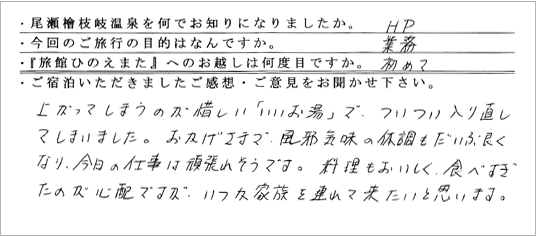 ・尾瀬檜枝岐温泉を何でお知りになりましたか。 HP
・今回のご旅行の目的はなんですか。 業務
・『旅館ひのえまた』へのお越しは何度目ですか。 初めて
・ご宿泊いただきましたご感想・ご意見をお聞かせ下さい。
上がってしまうのが惜しい「いいお湯」で、ついつい入り直し
てしまいました。おかげさまで、風邪気味の体調もだいぶ良く
なり、今日の仕事は頑張れそうです。料理もおいしく、食べすぎ
たのが心配ですが、いつか家族を連れて来たいと思います。